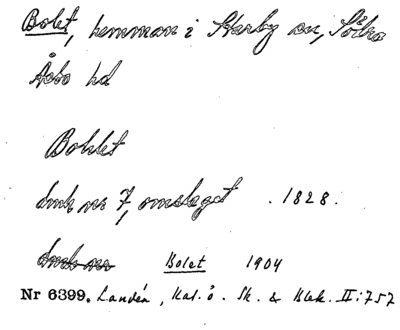 Bolet, hemman i Starby sn, Södra
Åsbo hd
Bohlet
Smh nr 7, omslaget. 1828.
Smh nr Bolet 1904
Nr 6399. Landén, Kat. ö. Sk. & Blek. II:757